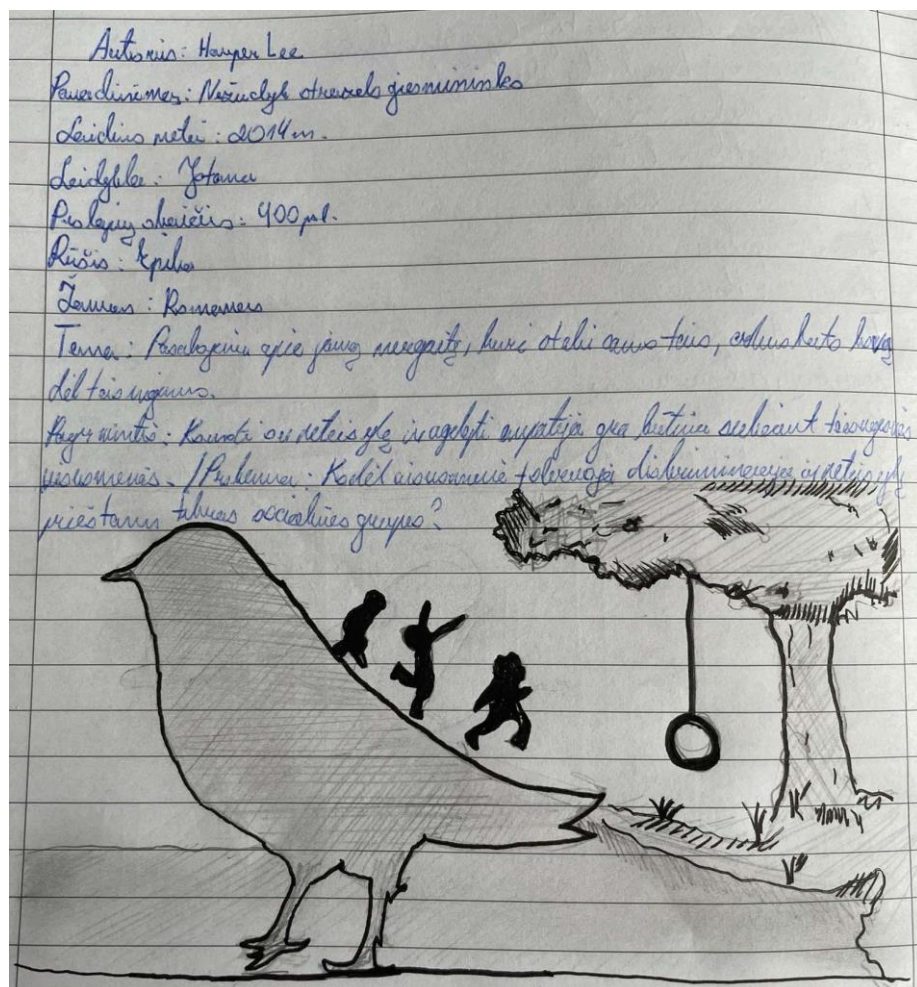 Autorius: Harper Lee
Pavadinimas: Nežudyk strazdo giesmininko
Leidimo metai: 2014 m.
Leidykla: Jotema
Puslapių skaičius: 400 psl.
Rūšis: Epika
Žanras: Romanas
Tema: Pasakojima apie jauną mergaitę, kuri
dėl teisingumo.
Pagr mintis: Kovoti su neteisybe ir ugdyti empatija yra būtina siekiant
visuomenės. / Problema: Kodėl visuomenė toleruoja diskriminacija ir neteisybę
prieš tam tikras socialines grupes?